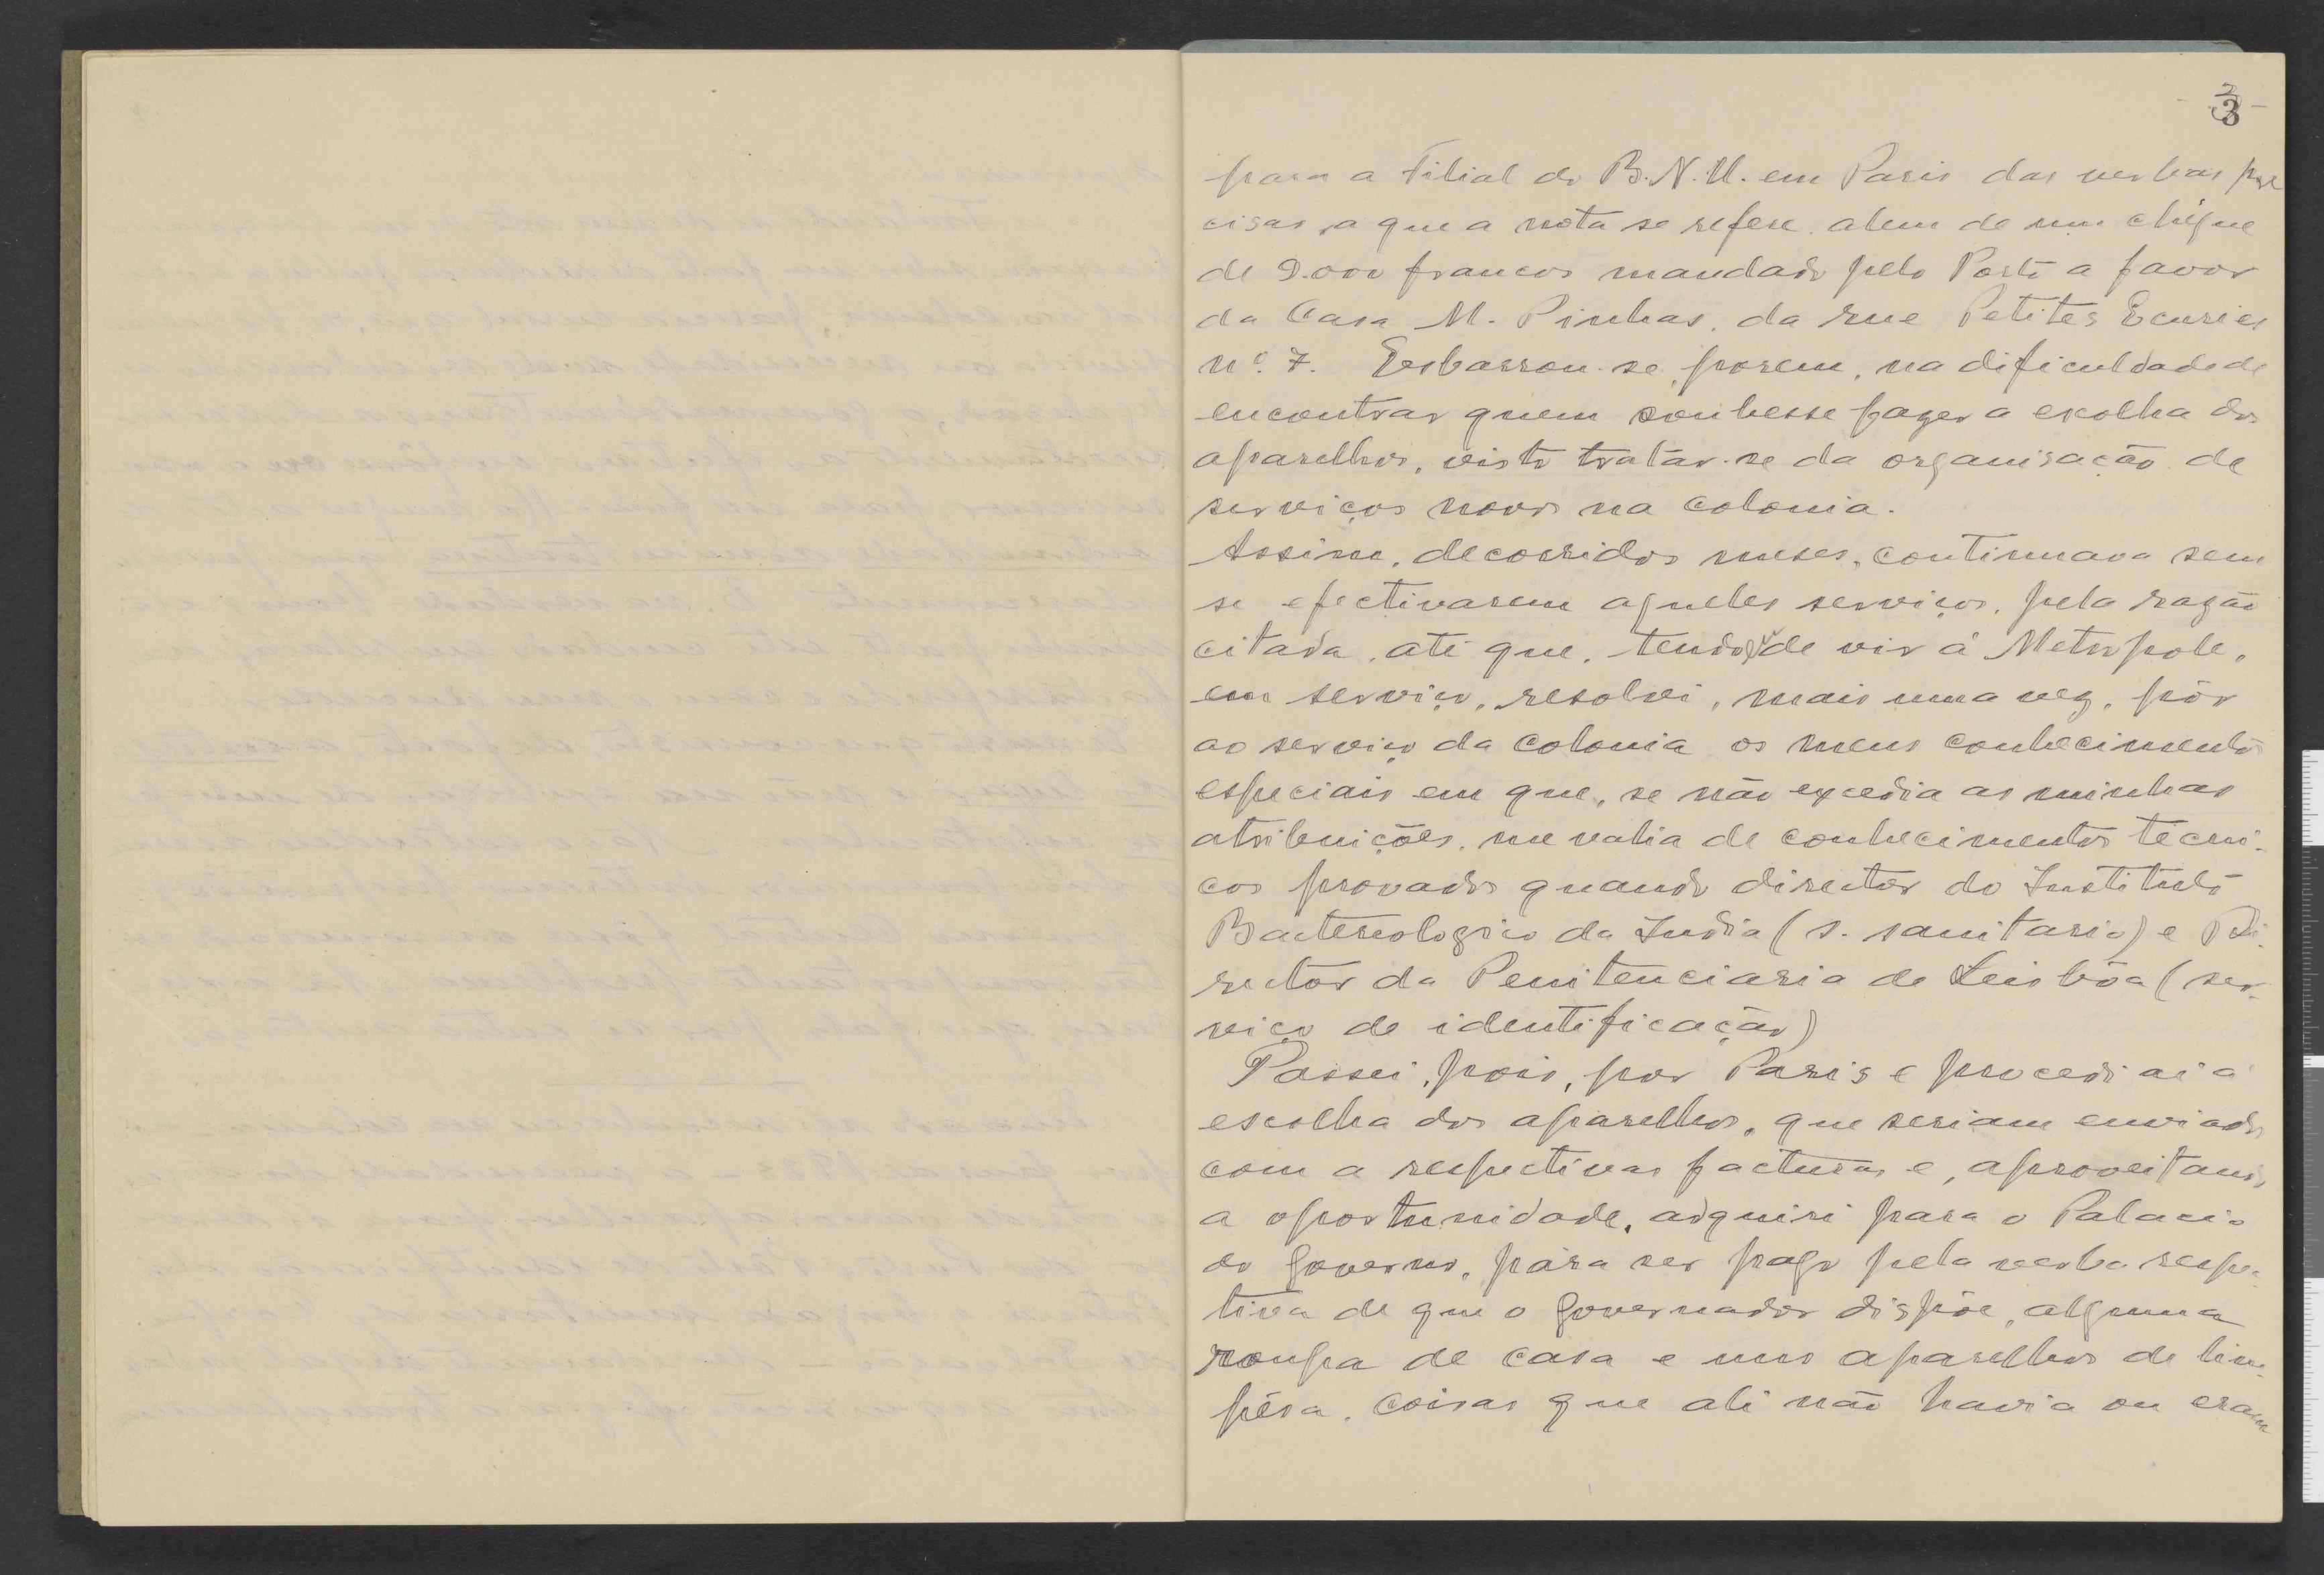 3
para a Filial do B.N.U. em Paris das verbas pre
cisas, a que a nota se refere, alem de um chéque
de 9.000 francos mandado pelo Porto a favor
da Casa M. Pinhas, da rue Petites Ecuries
nº. 7. Esbarrou-se, porem, na dificuldade de
encontrar quem soubesse fazer a escolha dos
aparelhos, visto tratar-se da organisação de
serviços novos na colonia.
Assim, decorridos meses, continuava sem
se efectivarem aqueles serviços, pela razão
citada, até que, tendo eu de vir á Metropole,
em serviço, resolvi, mais uma vez, pôr
ao serviço da colonia os meus conhecimentos
especiais em que, se não excedia as minhas
atribuições, me valia de conhecimentos técni-
cos provados quando director do Instituto
Bacteriologico da India (s. sanitario) e Di-
rector da Penitenciaria de Lisbôa (ser-
viço de identificação)
Passei, pois, por Paris e procedi ai á
escolha dos aparelhos, que seriam enviados
com a respectivas facturas e, aproveitando
a oportunidade, adquiri para o Palacio
do Governo, para ser pago pela verba respe-
tiva de que o Governador dispõe, alguma
roupa de casa e uns aparelhos de lim-
pêsa, coisas que ali não havia ou eram